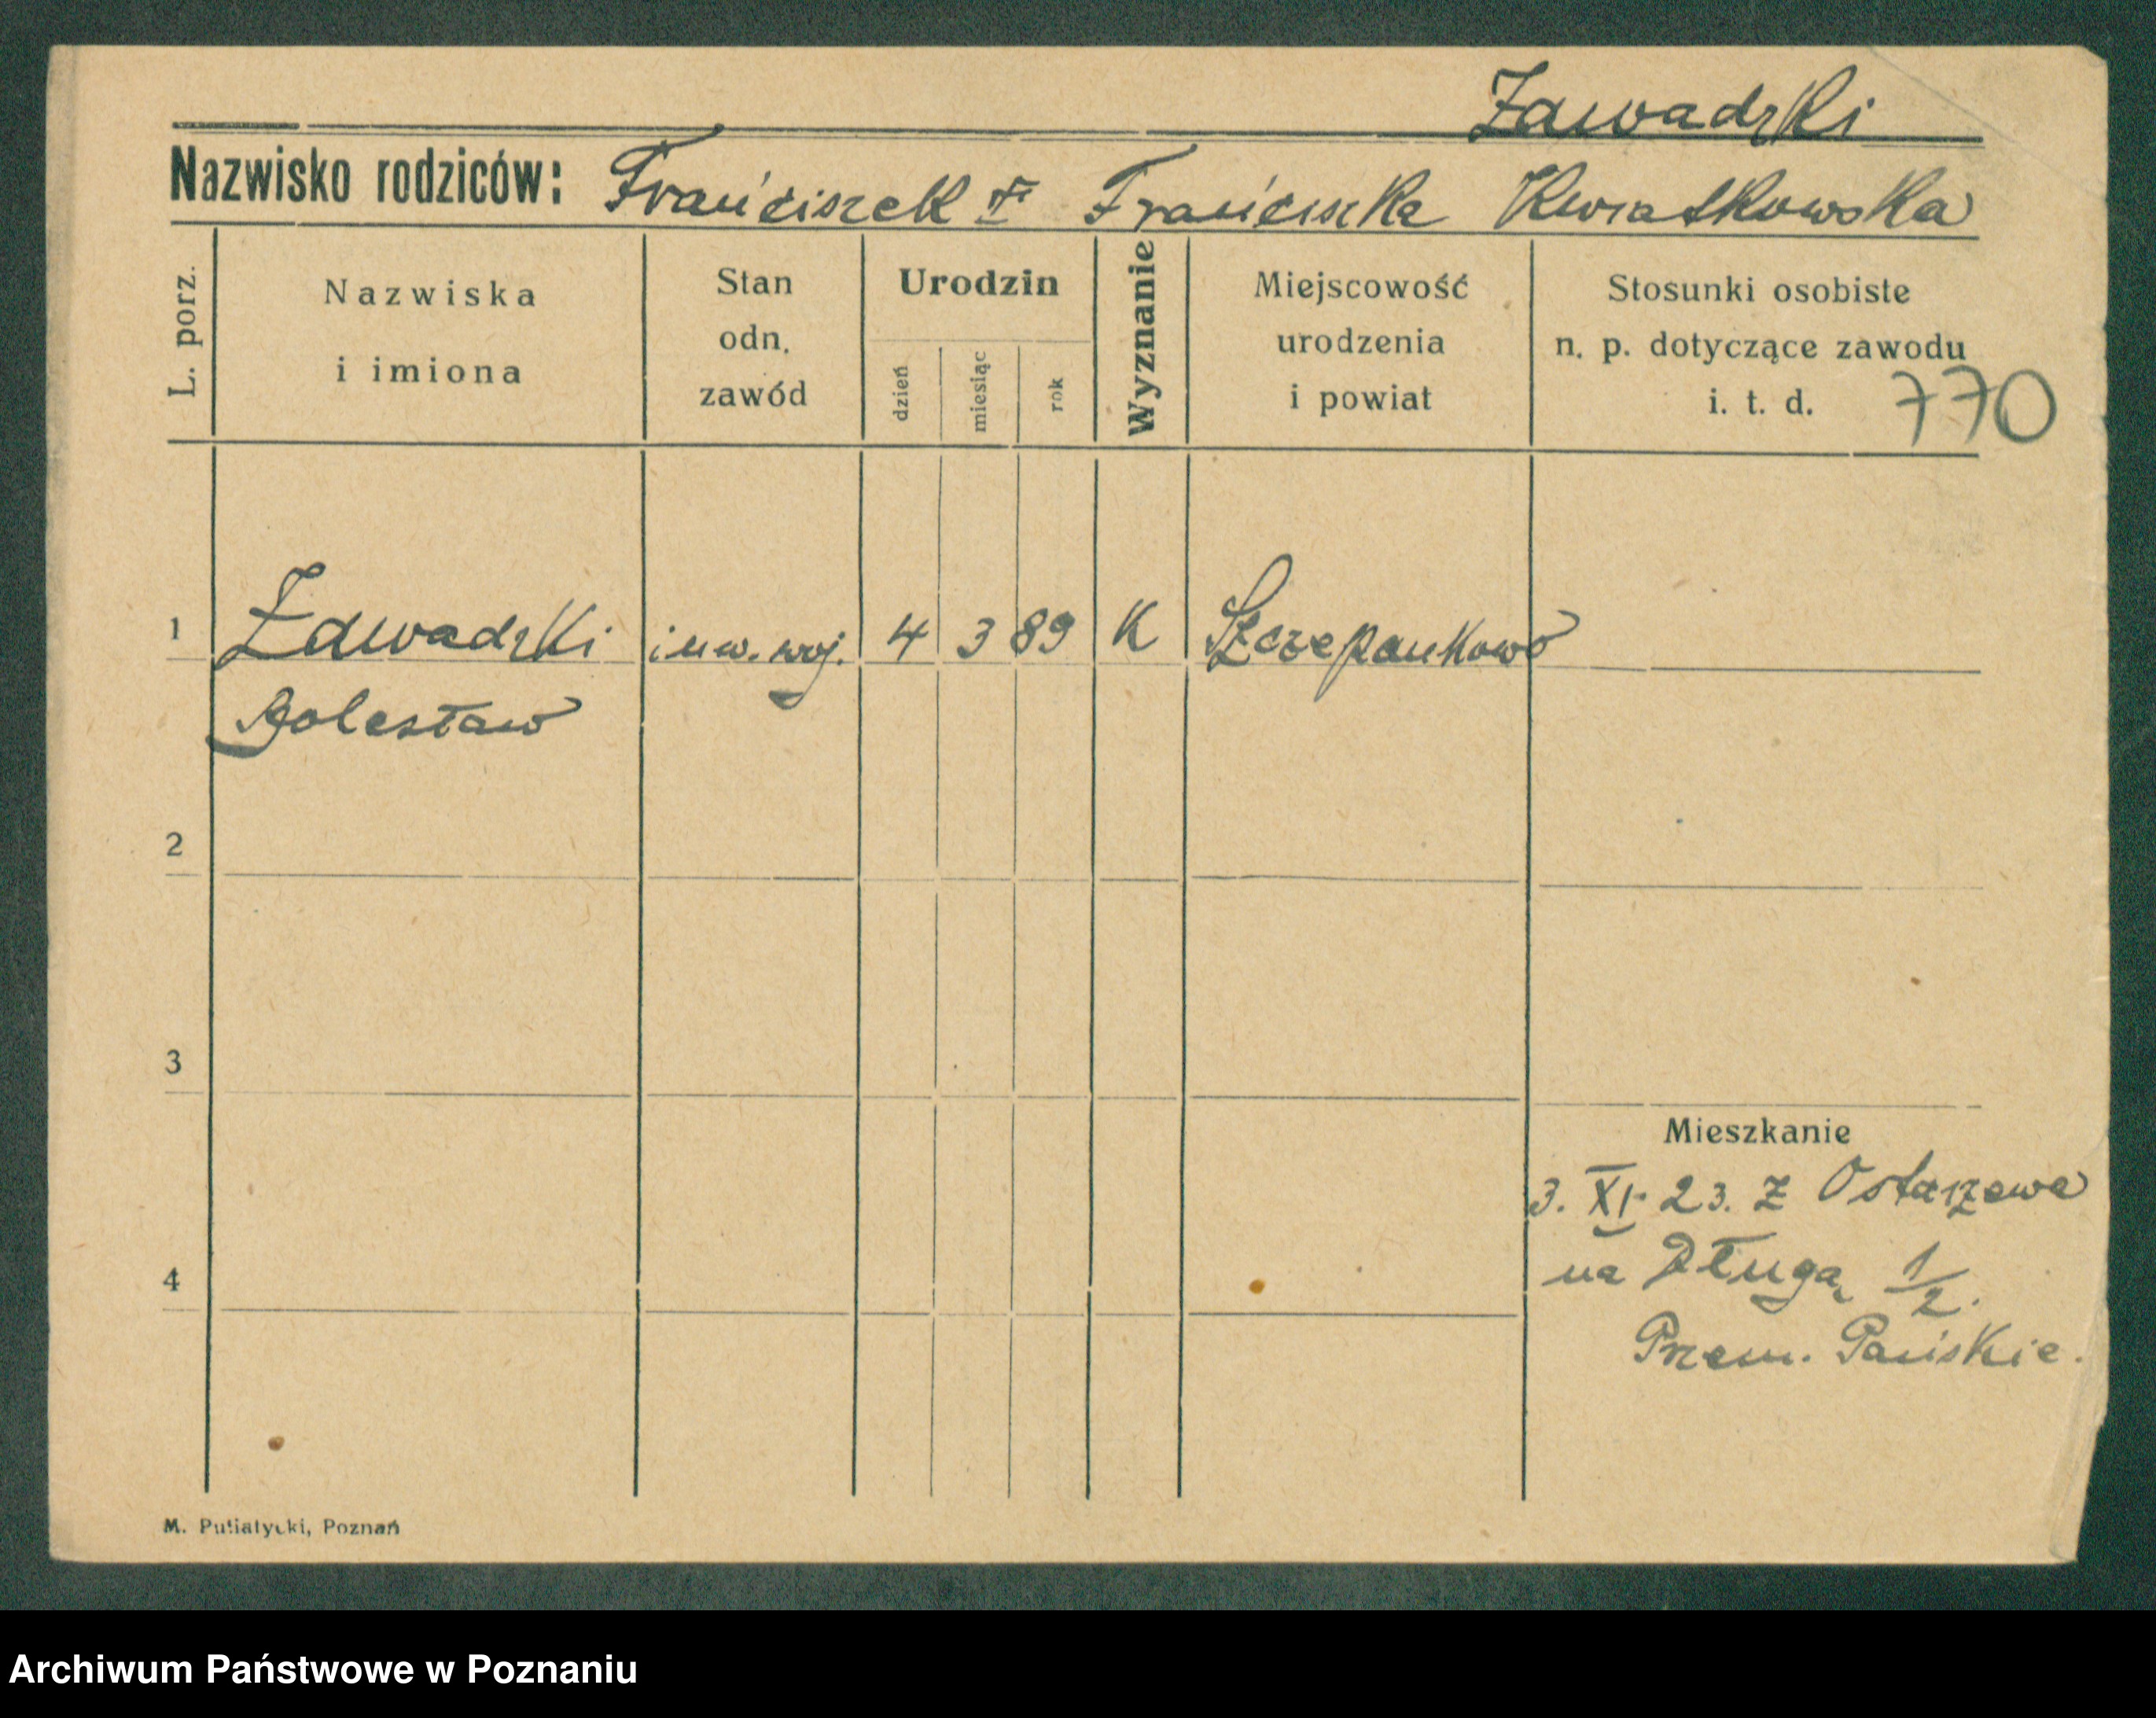 Zawadzki
Nazwisko rodziców: Franciszek i Franciszka Kwiatkowska
L. porz.
Nazwiska
i imiona
Stan
odn.
zawód
Urodzin
dzień
miesiąc
rok
Wyznanie
Miejscowość
urodzenia
i powiat
Stosunki osobiste
n. p. dotyczące zawodu
i. t. d.
770
1 Zawadzki inw. woj. 4 3 89 K Szczepankowo
Bolesław
2
3
Mieszkanie
3. XI. 23. z
na Długą 1/2.
4
Przem. Pańskie.
M. Putiatycki, Poznań
Archiwum Państwowe w Poznaniu